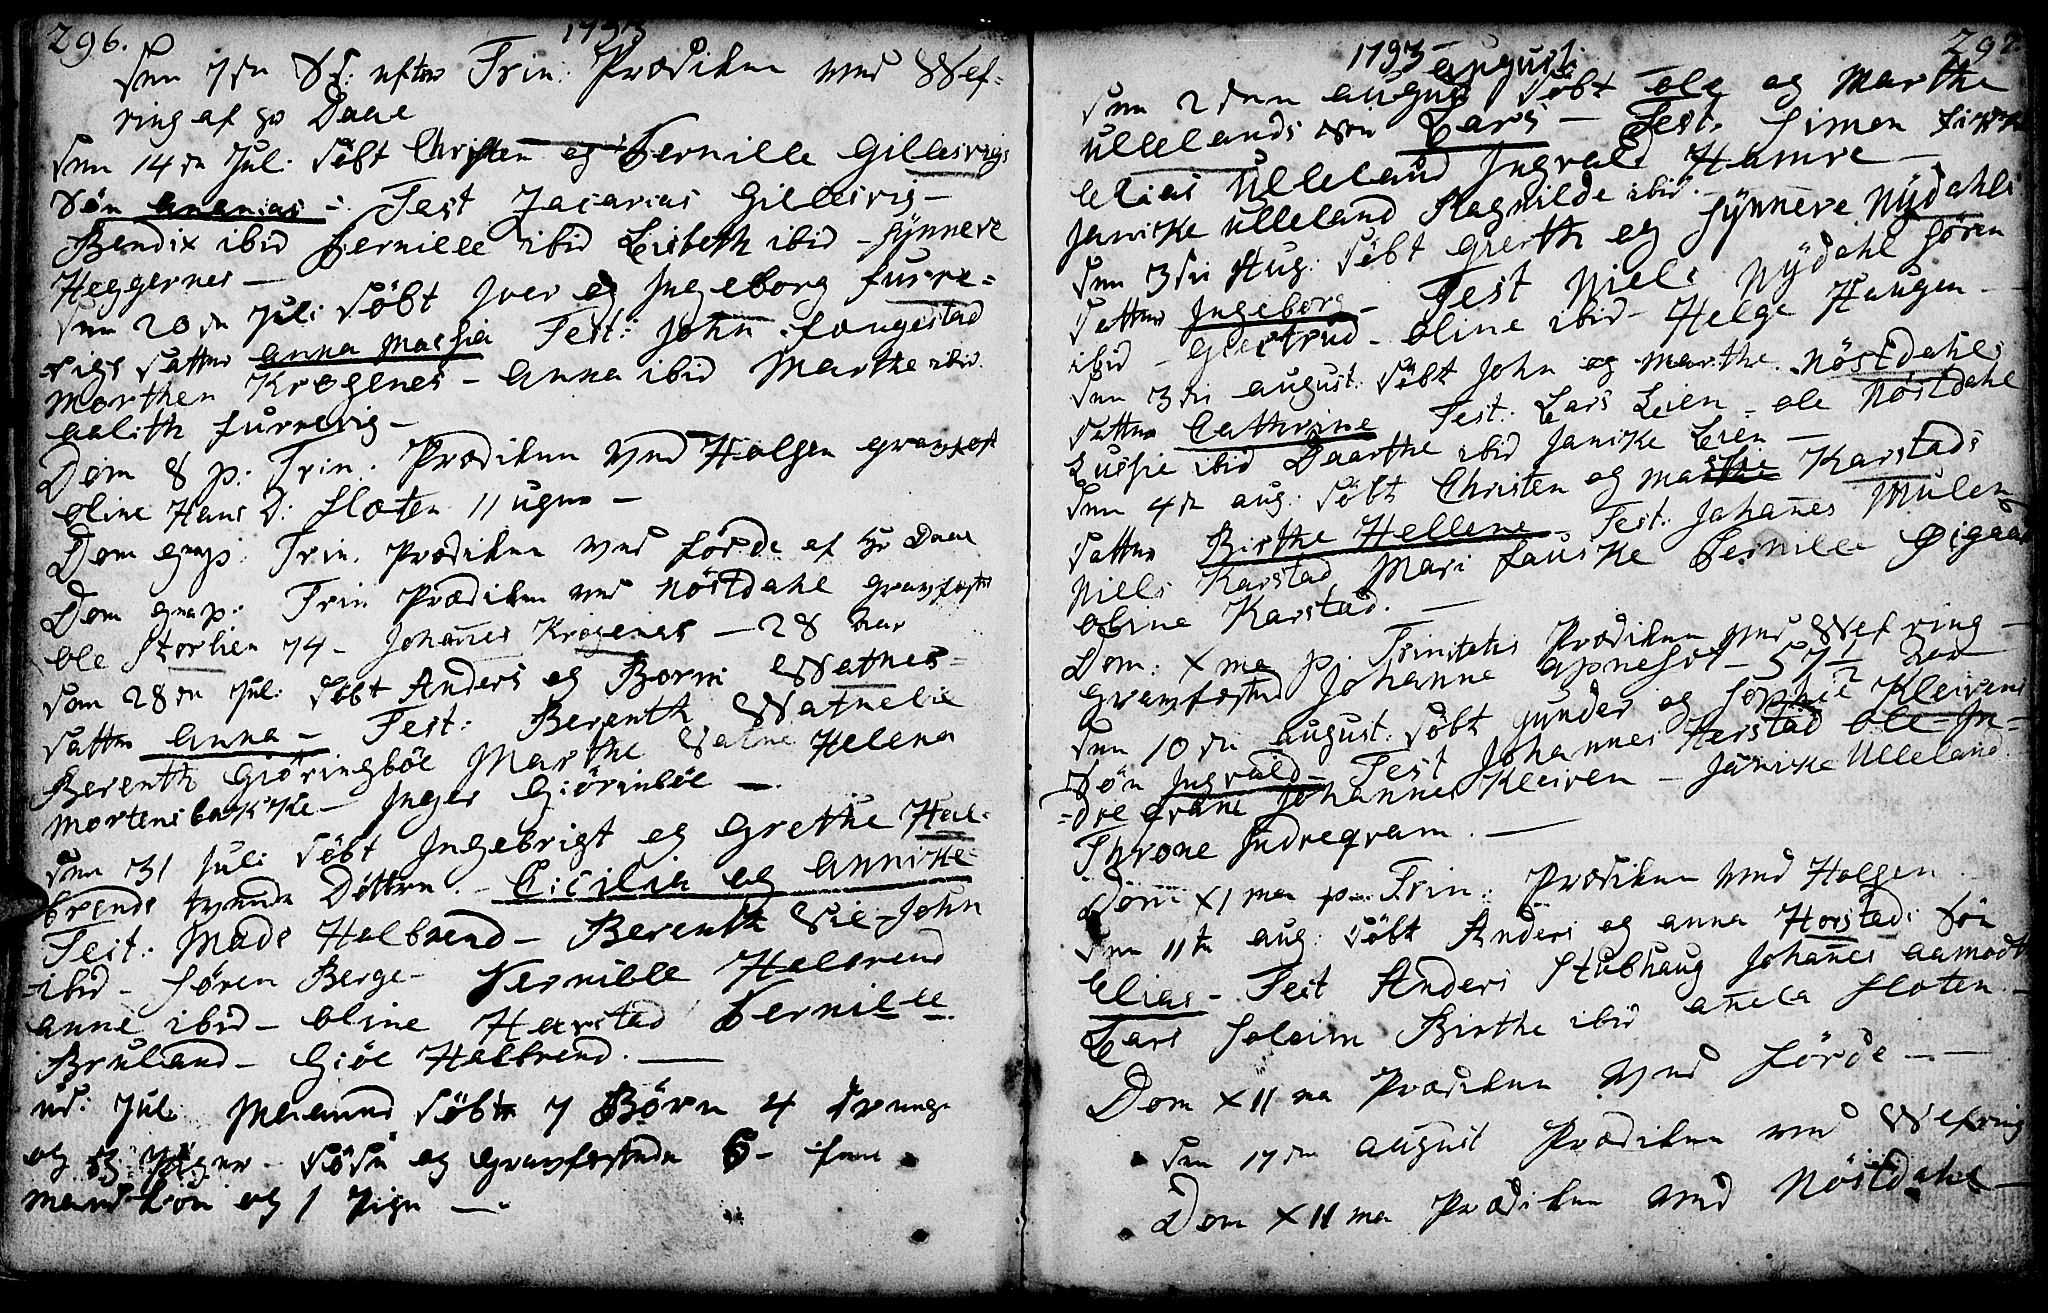 296.
1793
den 7de Sd: efter Trin: Prædiken ved Wef-
ring af Hr Daae
den 14de Jul. döbt Christen og Pernille Gillesvigs
Sön Ananias - Test Zacarias Gillesvig -
Bendix ibid Pernille ibid Lisbeth ibid - Synneve
Heggernes -
den 20de Juli döbt Iver og Ingeborg furre-
vigs datter Anna Massia Test: John Longestad
Morthen Krogenes - Anna ibid Marthe ibid.
Aalith furrevig -
Dom 8 p: Trin. Prædiken ved Holsen gravfæst
Oline Hans D: Sloten 11 uger -
Dom p: Trin. Prædiken ved förde af Hr Daae
Dom p: Trin Prædiken ved Nöstdahl gravfæstet
Ole Storlien 74 - Johannes Krogenes - 28 Aar
den 28de Jul: döbt Anders og Borni Watnes-
datter Anna - Test: Berenth Watnelie
Berenth Giöringböe Marthe Watne Helena
Mortensbakke - Inger Giörinböe -
den 31 Juli döbt Ingebrigt og Grethe Hal-
brends tvende Döttre - Cicilia og Annike
Test: Mads Halbrend - Berenth Vie - John
ibid - Sören Berge - Pernille Halbrend
Anne ibid - Oline Harstad Pernille
Bruland - Giöe Halbrend. -
ud: Juli Maaned döbt 7 Börn 4 drenge
og 3 Piger - döde og gravfæstede 6 -
mandkön og 1 Pige -
297.
1793 - August.
den 2den August döbt Ole og Marthe
Ullelands Sön Lars - Test. Simon
Elias Ulleland Ingvald Hamre -
Janicke Ulleland Ragnilde ibid.
den 3die Aug: döbt Greth og Synneve Nÿdahls
datter Ingeborg - Test Niels Nÿdahl Sören
ibid - Giertrud - Oline ibid - Helge Haugen -
den 3die August: döbt John og Marthe Nöstdahls
datter Cathrine Test: Lars Leien - Ole Nöstdahl
Lussie ibid Daarthe ibid Janicke Leien -
den 4de Aug: döbt Christen og Marthe Karstads
datter Birthe Hellene - Test: Johannes Mulen
Niels Karstad Mari Fauske Pernille Öigaar
Oline Karstad. -
Dom: X ma p: Trinitatis Prædiken ved Wefring -
gravfæstet Johanne Apneset - 57 1/2 Aar
den 10de August: döbt Gunder og Sophie Kleivens
Sön Ingvald - Test Johannes Herstad Ole In-
dregrane Johannes Kleiven - Janicke Ulleland
Throne Indregram. -
Dom XI ma p: Trin: Prædiken ved Holsen
den 11te Aug: döbt Anders og Anna Horstads Sön
Elias - Test Anders Stubhaug Johannes Aamodt
Lars Soleim Birthe ibid Sloten -
Dom XII ma Prædiken ved Förde -
den 17de August Prædiken ved Wefring
Dom XII ma Prædiken ved Nöstdahl -